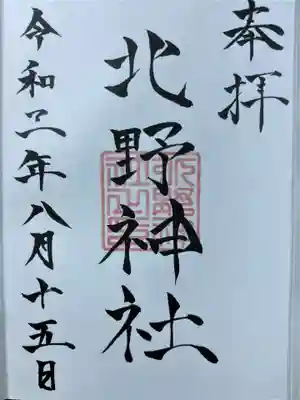 奉拝
北野神社
令和二年八月十五日